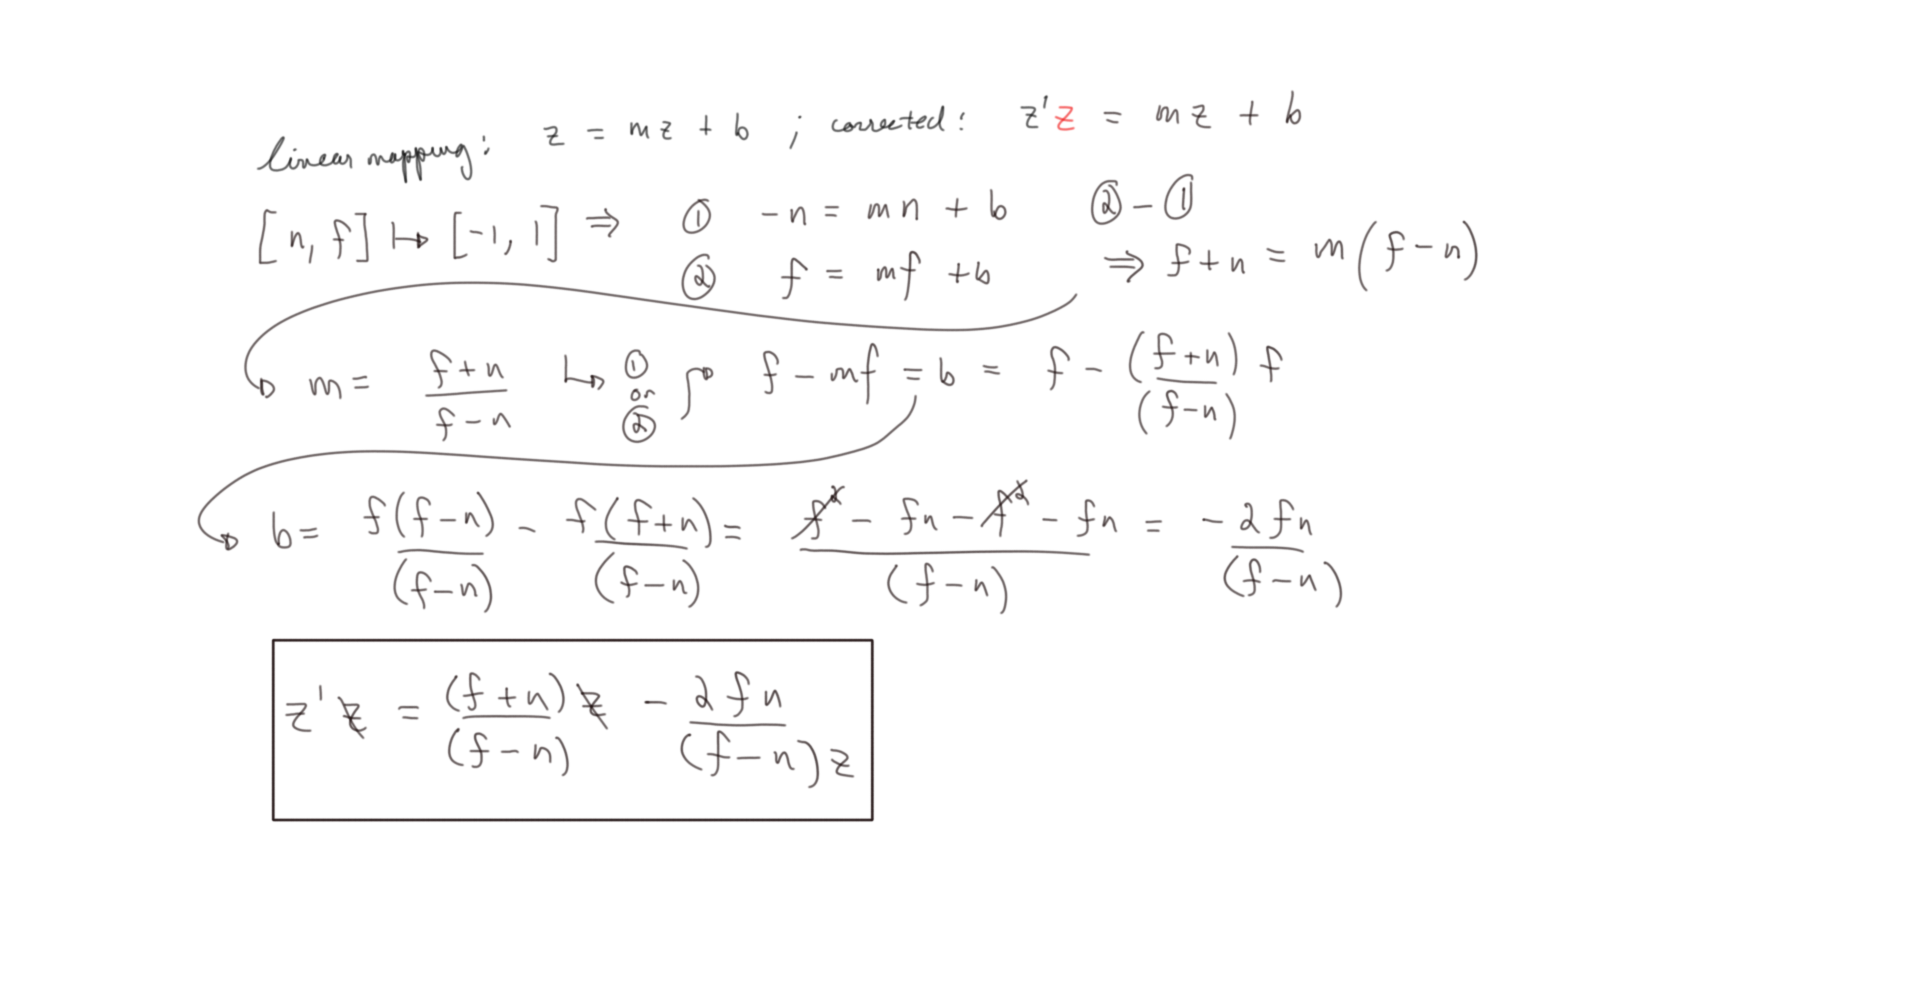 linear mapping: z = mz + b ; corrected: z'z = mz + b
[n, f] ↦ [-1, 1] ⇒ ① -n = mn + b ② - ①
② f = mf + b ⇒ f + n = m(f - n)
m = (f + n)/(f - n) ↳ ① or ② f - mf = b = f - (f + n)/(f - n) f
b = f(f - n)/(f - n) - f(f + n)/(f - n) = (f² - fn - f² - fn)/(f - n) = -2fn/(f - n)
z'z = (f + n)z/(f - n) - 2fn/((f - n)z)